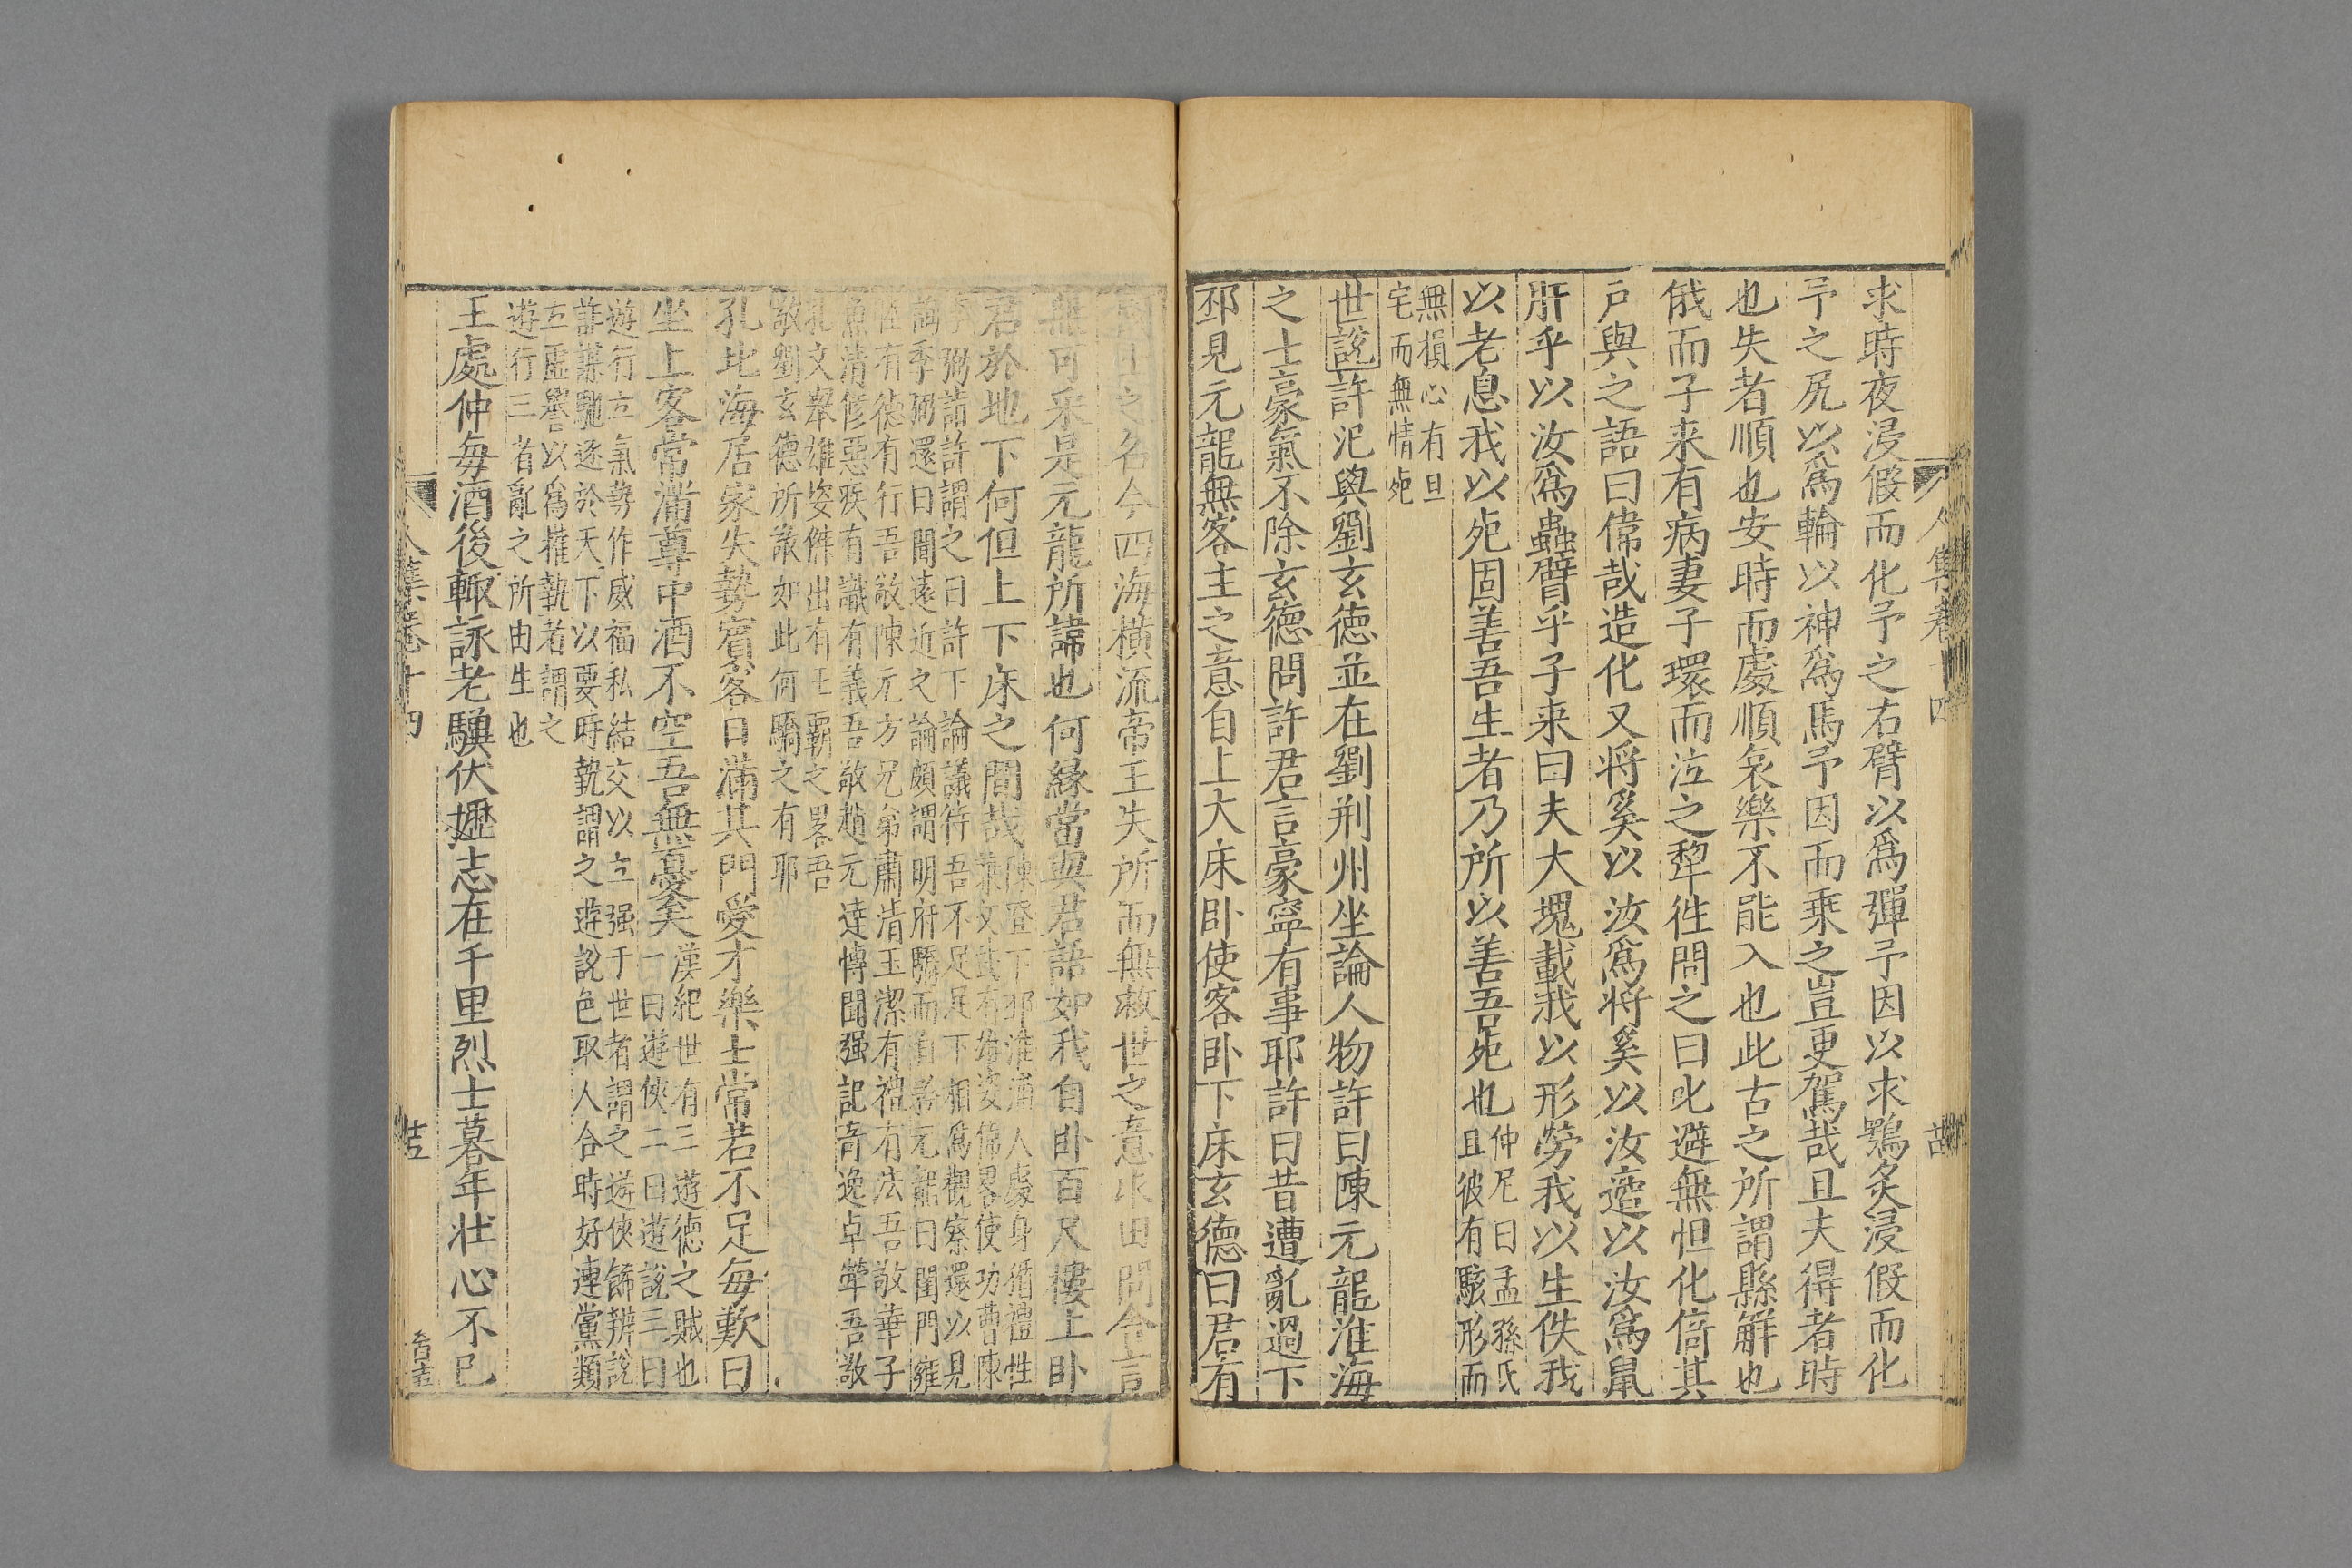 求時夜浸假而化予之右臂以爲彈予因以求鴞炙浸假而化
予之尻以爲輪以神爲馬予因而乘之豈更駕哉且夫得者時
也失者順也安時而處順哀樂不能入也此古之所謂縣解也
俄而子来有病妻子環而泣之犂徃問之曰叱避無怛化倚其
戸與之語曰偉哉造化又将奚以汝爲将奚以汝適以汝爲鼠
肝乎以汝爲蟲臂乎子来曰夫大塊載我以形勞我以生佚我
以老息我以死固善吾生者乃所以善吾死也
仲尼曰孟孫氏
且彼有駭形而
無損心有旦
宅而無情死
世説許汜與劉玄德並在劉荆州坐論人物許曰陳元龍淮海
之士豪氣不除玄德問許君言豪寧有事耶許曰昔遭亂過下
邳見元龍無客主之意自上大床卧使客卧下床玄德曰君有
國士之名今四海橫流帝王失所而無救世之意求田問舍言
無可采是元龍所諱也何緣當與君語如我自卧百尺樓上卧
君於地下何但上下床之間哉
陳登下邳淮浦人處身循禮性
兼文武有雄姿偉畧使功曹陳
季弼詣許謂之曰許下論議待吾不足足下相爲觀察還以見
誨季弼還曰聞遠近之論頗謂明府驕而自矜元龍曰閨門雍
睦有德有行吾敬陳元方兄弟肅清玉潔有禮有法吾敬華子
魚清修惡疾有識有義吾敬趙元達博聞强記竒逸卓犖吾敬
孔文舉雄姿傑出有王覇之畧吾
敬劉玄德所敬如此何驕之有耶
孔北海居家失勢賓客日滿其門愛才樂士常若不足每歎曰
坐上客常滿尊中酒不空吾無憂矣
漢紀世有三遊德之賊也
一曰遊俠二曰遊説三曰
遊行立氣勢作威福私結交以立强于世者謂之遊俠飾辨說
詐謀馳逐於天下以要時執謂之遊說色取人合時好連黨類
立虛譽以爲權執者謂之
遊行三者亂之所由生也
王處仲每酒後輙詠老驥伏櫪志在千里烈士暮年壮心不已